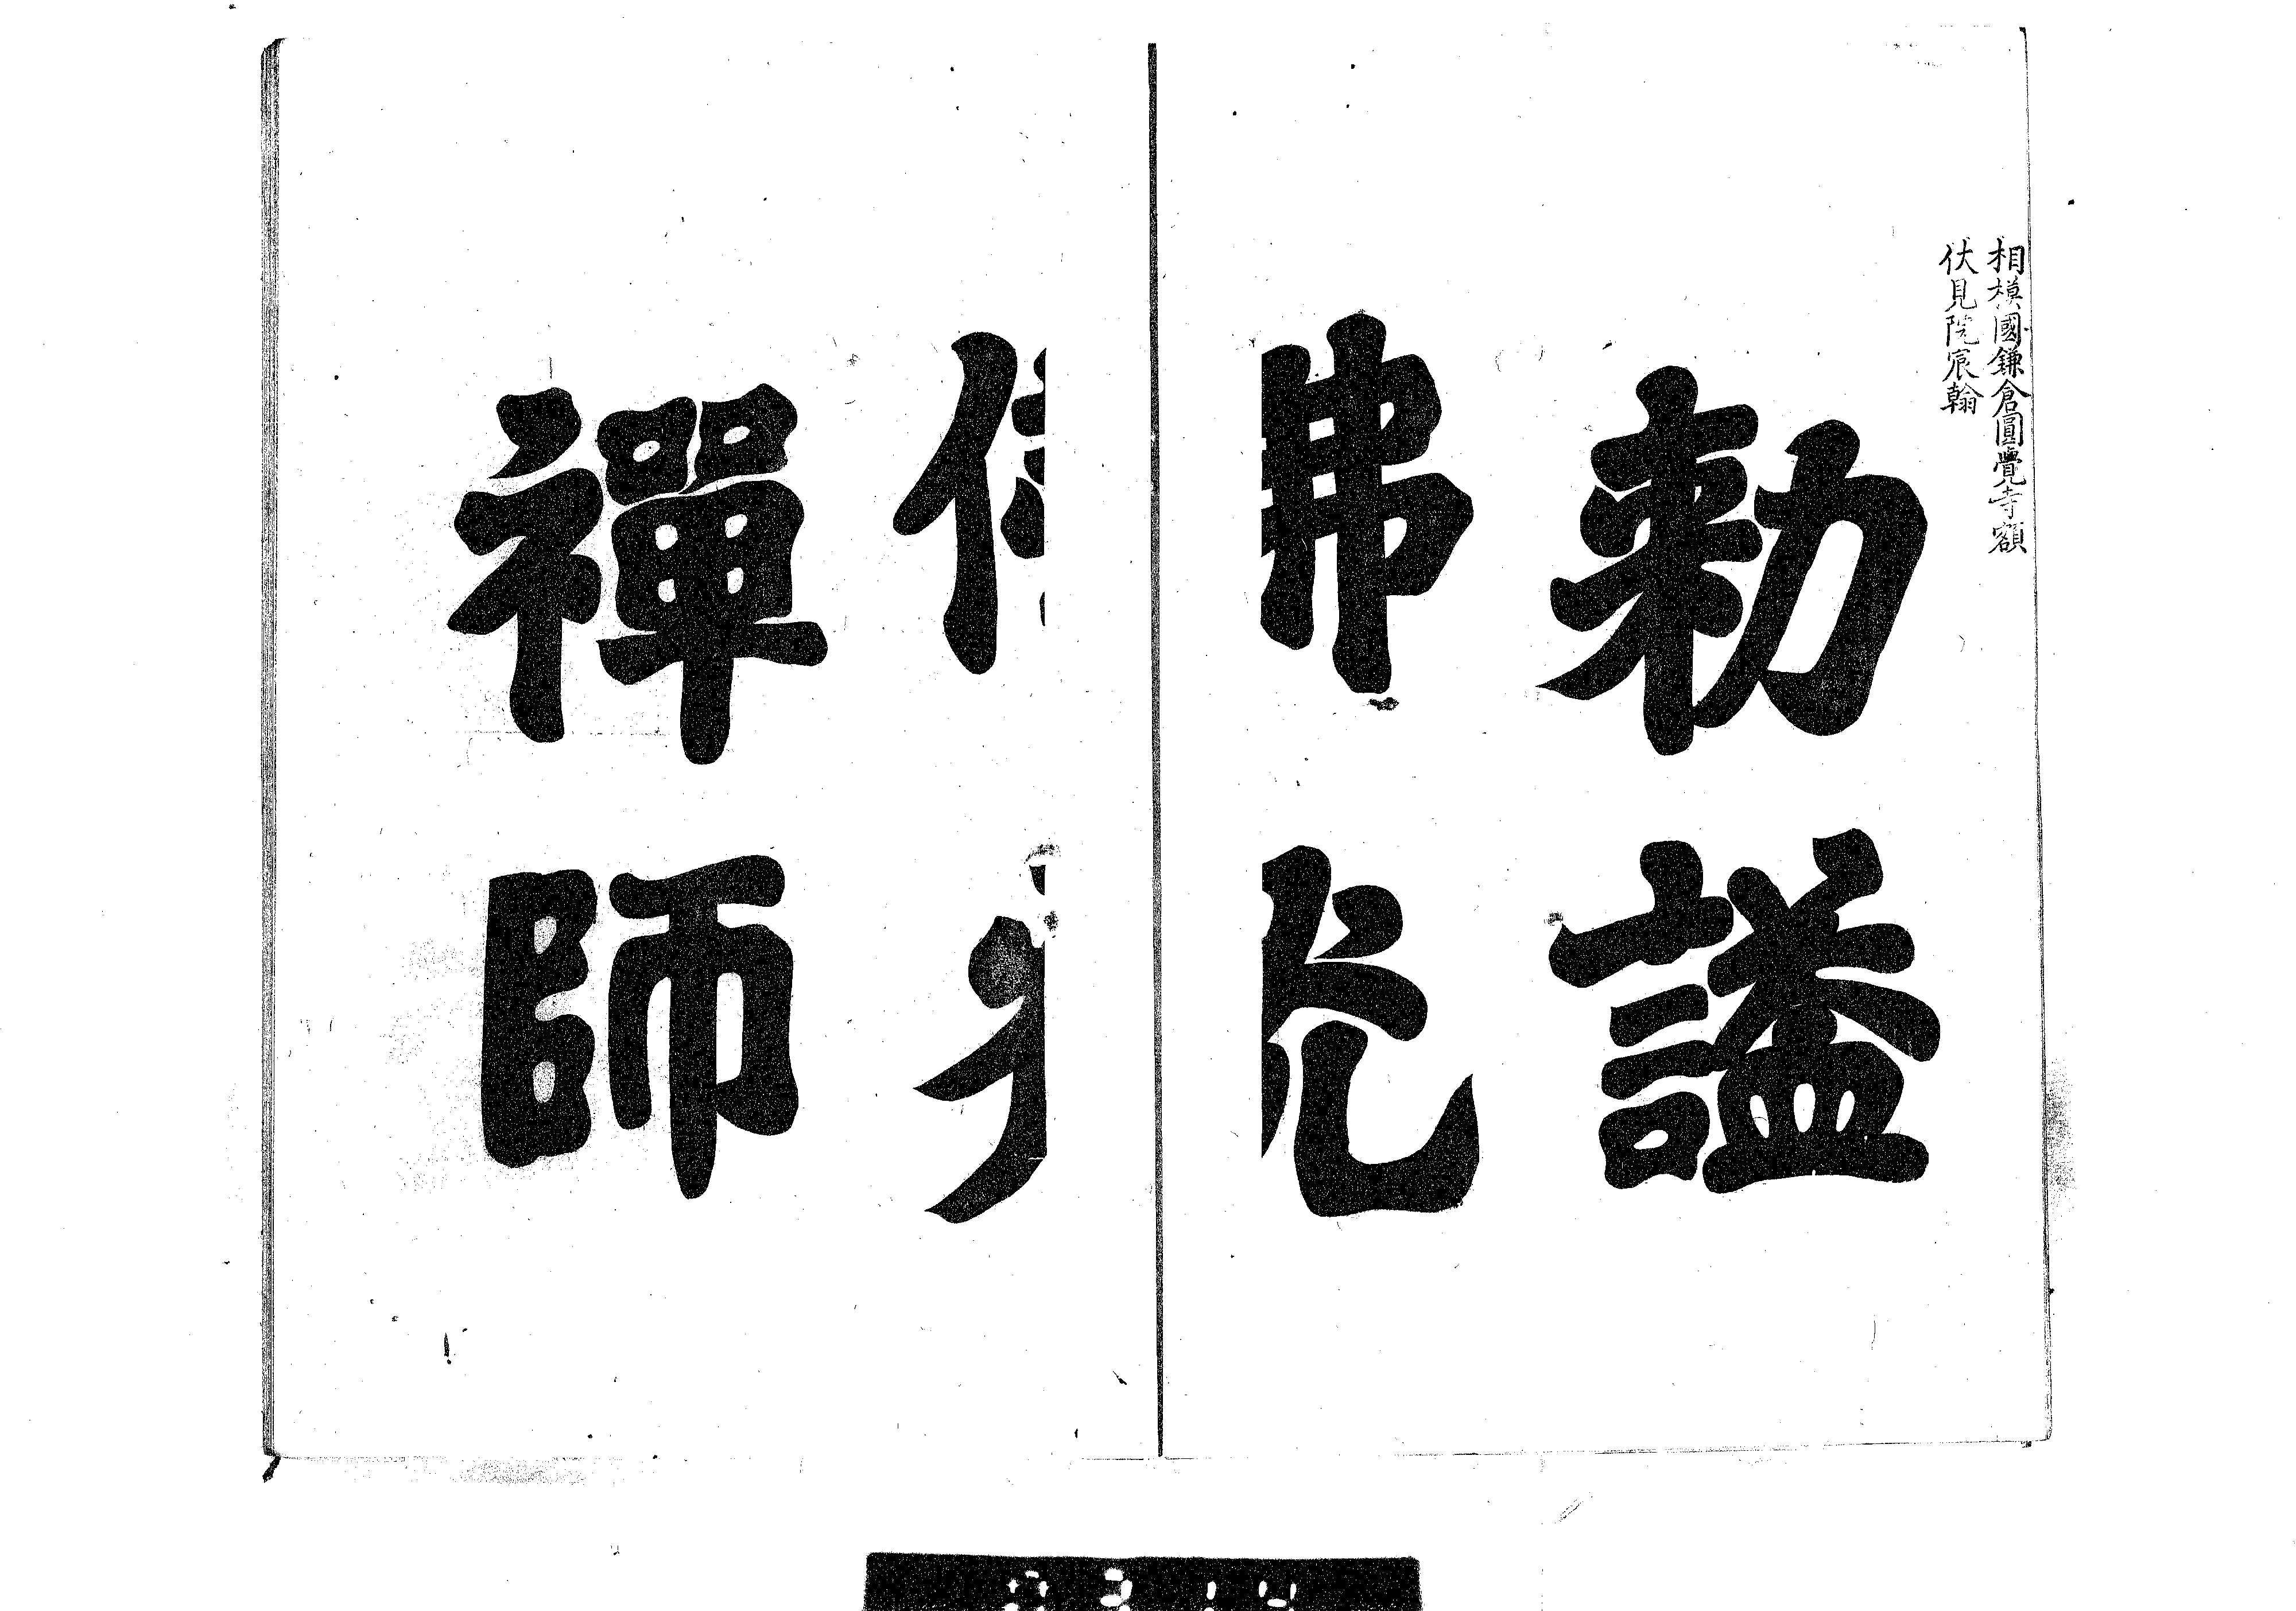 相模國鎌倉圓覺寺額
伏見院宸翰
勅謚
佛光
禪師